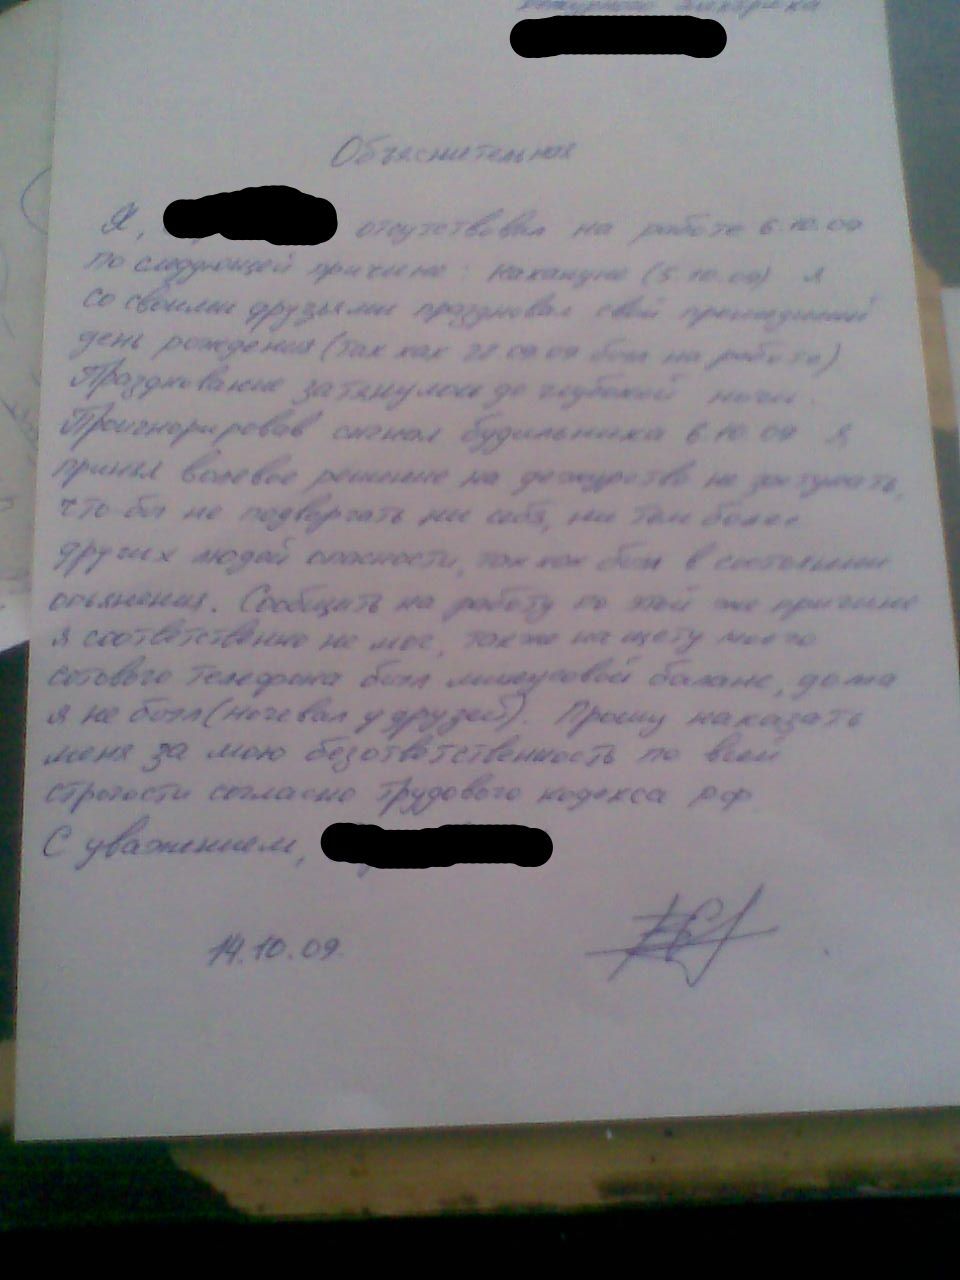 дежурного электрика
Объяснительная
Я, отсутствовал на работе 6.10.09
по следующей причине: накануне (5.10.09) я
со своими друзьями праздновал свой прошедший
день рождения (так как 28.09.09 был на работе)
Празднование затянулось до глубокой ночи.
Проигнорировав сигнал будильника 6.10.09 я,
принял волевое решение на дежурство не заступать,
что-бы не подвергать ни себя, ни тем более
других людей опасности, так как был в состоянии
опьянения. Сообщить на работу по этой же причине
я соответственно не мог, также на щету моего
сотового телефона был минусовой баланс, дома
я не был (ночевал у друзей). Прошу наказать
меня за мою безответственность по всей
строгости согласно Трудового кодекса РФ
С уважением,
14.10.09.